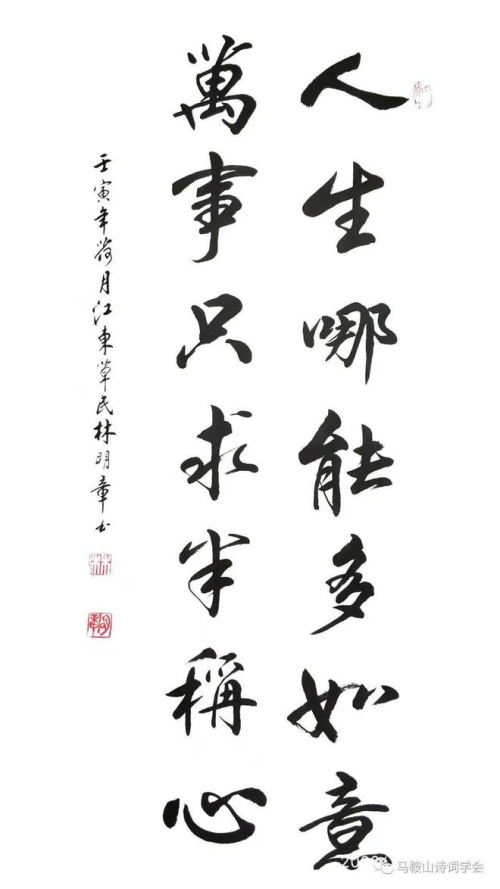 人生哪能多如意
萬事只求半稱心
壬寅年荷月江東草民林明章书
马鞍山诗词学会